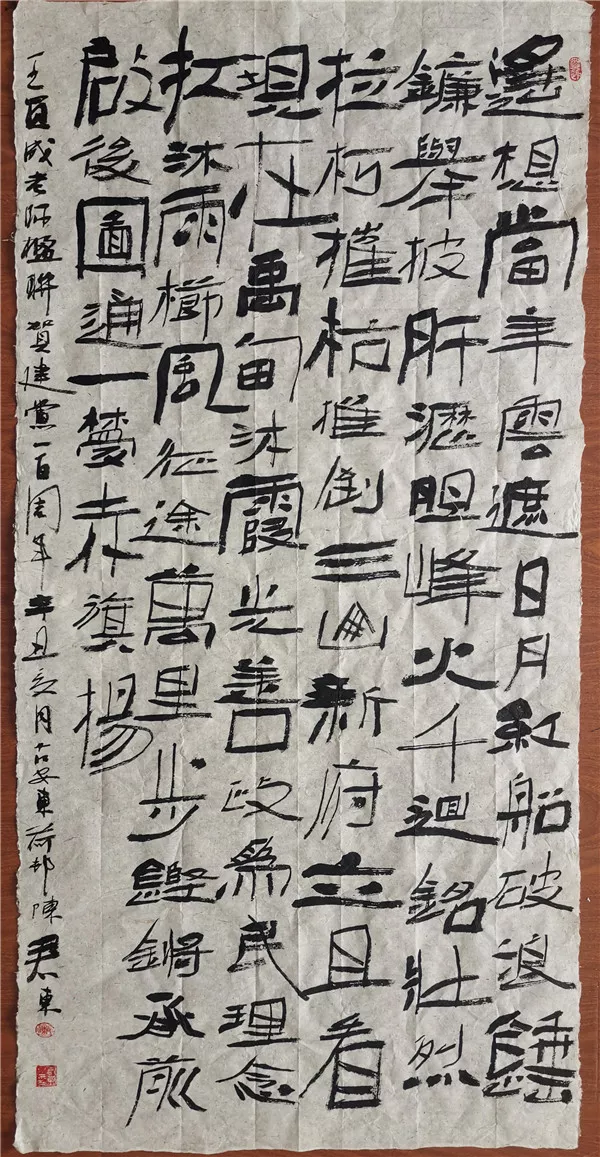 遙想當年雲遮日月紅船破浪錘
鐮舉披肝瀝胆峰火千迴銘壯烈
拉朽摧枯推倒三山新府立且看
現在禹甸沐霞光善政為民理念
扛沐雨櫛風征途萬里步鏗鏘承前
啟後圖通一夢赤旗揚
王成老師楹聯賀建黨一百周年辛丑月古安東荷邨陳君東